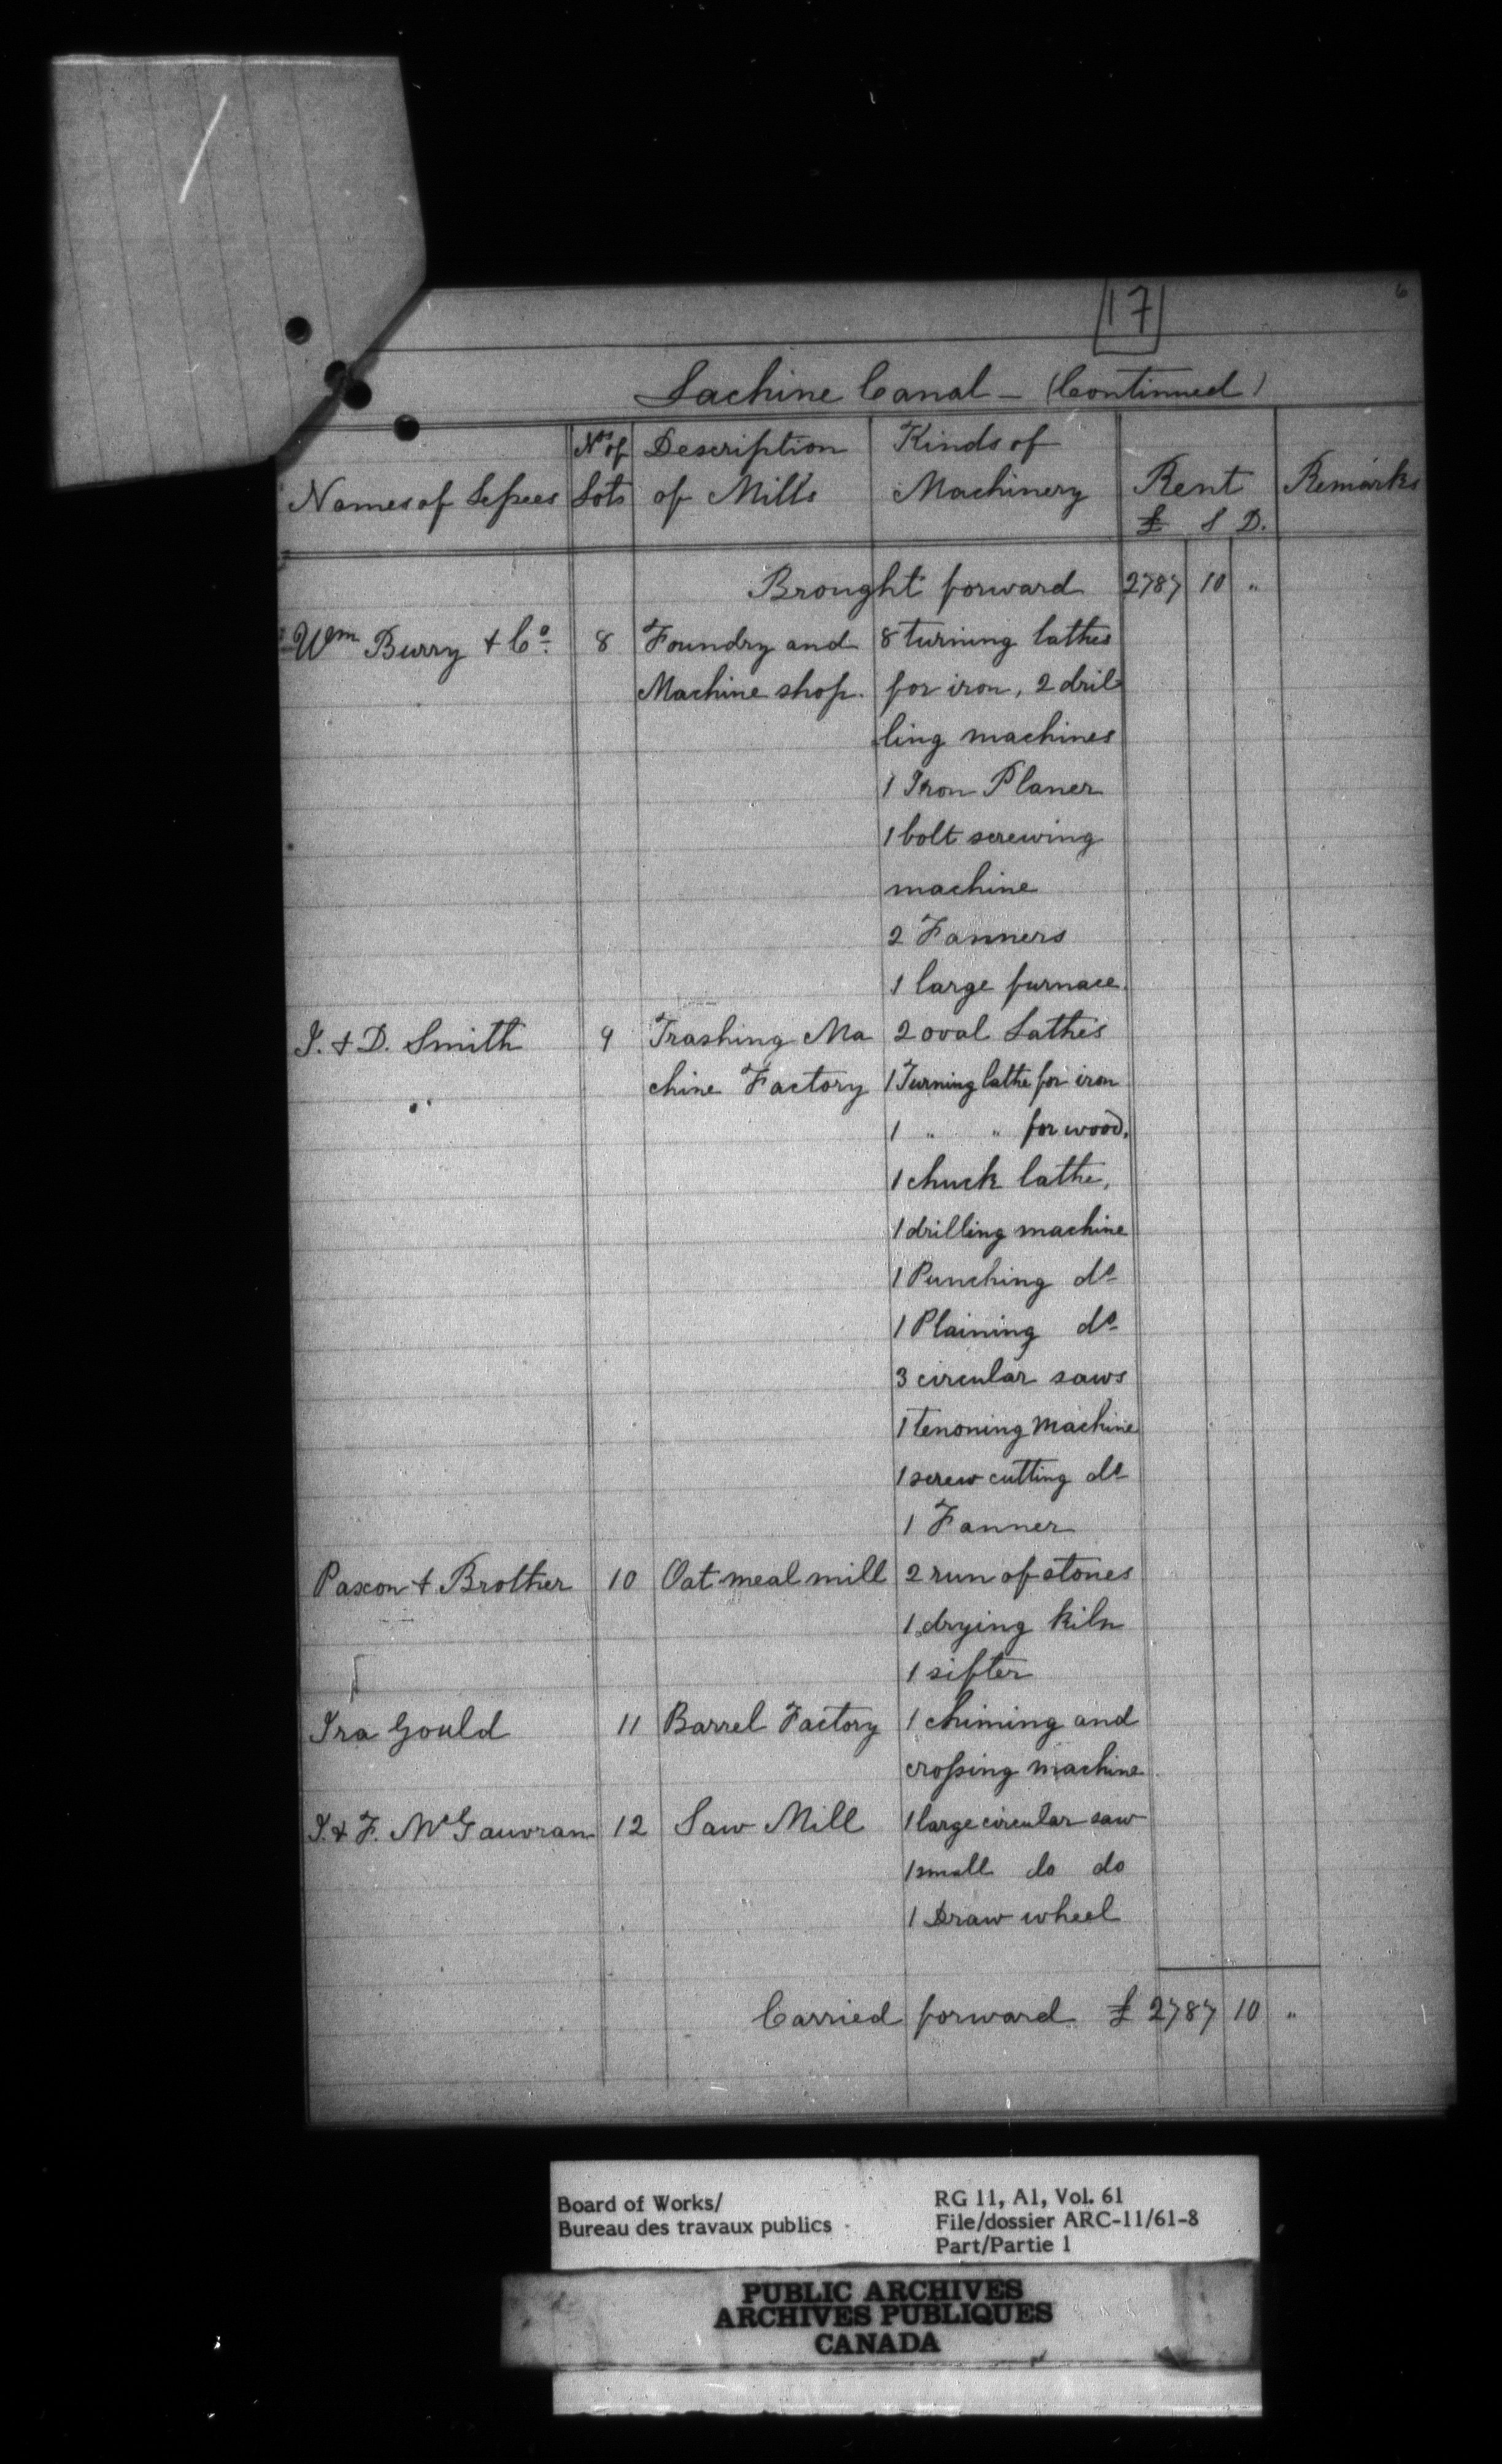 17
6
Lachine Canal - (Continued)
Names of Lessees | Nos of Lots | Description of Mills | Kinds of Machinery | Rent £ S D. | Remarks
Brought forward 2787 10 "
Wm Burry & Co. 8 Foundry and 8 turning lathes
Machine shop. for iron, 2 dril
ling machines
1 Iron Planer
1 bolt screwing
machine
2 Fanners
1 large furnace.
J. & D. Smith 9 Trashing Ma 2 oval Lathes
chine Factory 1 Turning lathe for iron
1 " " for wood,
1 chuck lathe,
1 drilling machine
1 Punching do
1 Plaining do
3 circular saws
1 tenoning machine
1 screw cutting do
1 Fanner
Paxon & Brother 10 Oatmeal mill 2 run of stones
1 drying kiln
1 sifter
Ira Gould 11 Barrel Factory 1 chiming and
crossing machine.
J. & F. McGauvran 12 Saw Mill 1 large circular saw
1 small do do
1 Draw wheel
Carried forward £ 2787 10 "
Board of Works/
Bureau des travaux publics
RG 11, A1, Vol. 61
File/dossier ARC-11/61-8
Part/Partie 1
PUBLIC ARCHIVES
ARCHIVES PUBLIQUES
CANADA